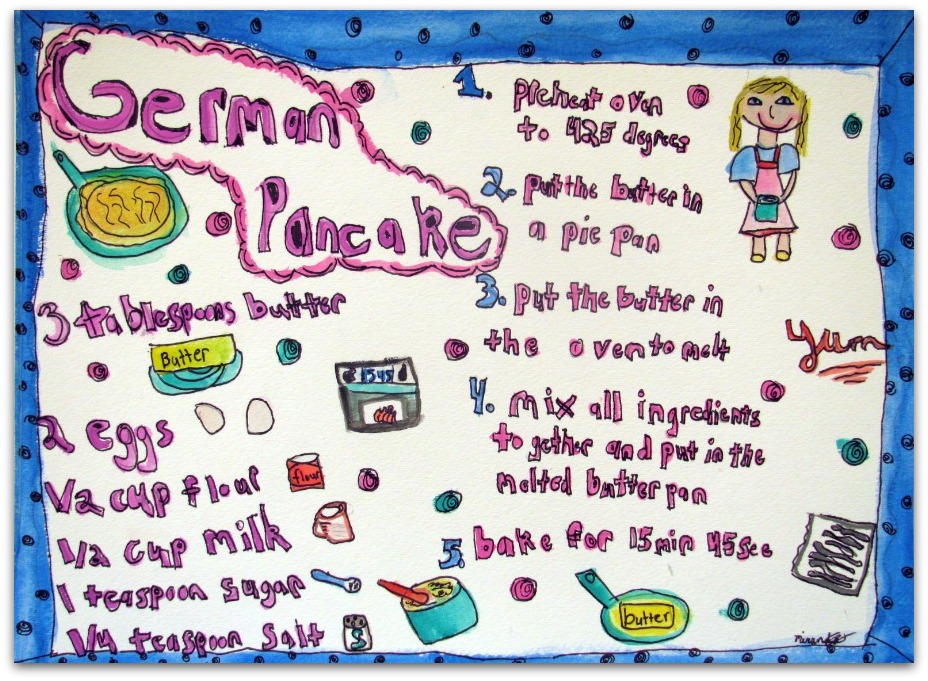 German
Pancake
3 tablespoons butter
Butter
1545
2 eggs
1/2 cup flour
flour
1/2 cup milk
1 teaspoon sugar
1/4 teaspoon salt
S
1. preheat oven
to 425 degrees
2. put the butter in
a pie pan
3. put the butter in
the oven to melt
Yum
4. mix all ingredients
to gether and put in the
melted butter pan
5. bake for 15 min 45 sec
butter